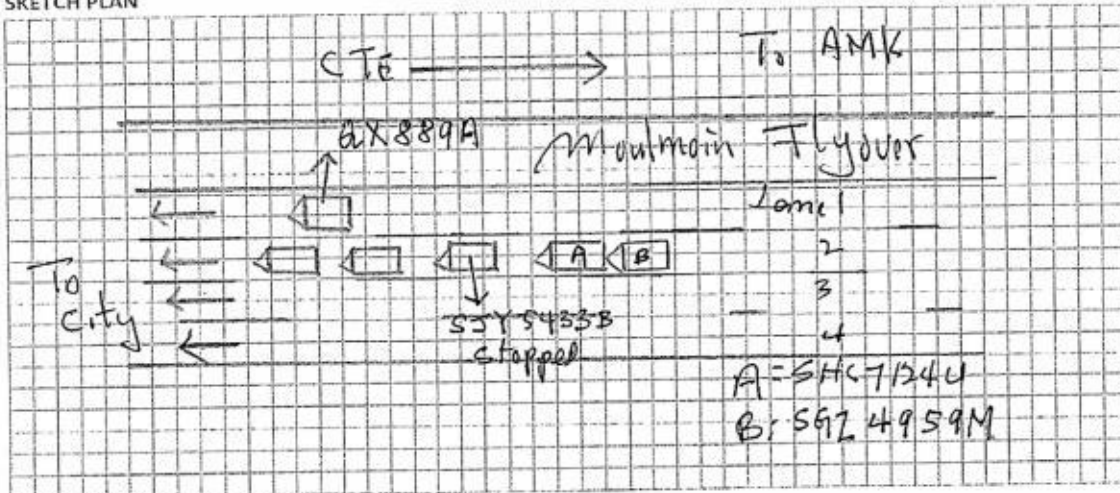 SKETCH PLAN
CTE To AMK
QX889A
Moulmein Flyover
Lane 1
2
A B
3
To City
SJY5433B
stopped
4
A = SHC7124U
B: SGZ 4959M